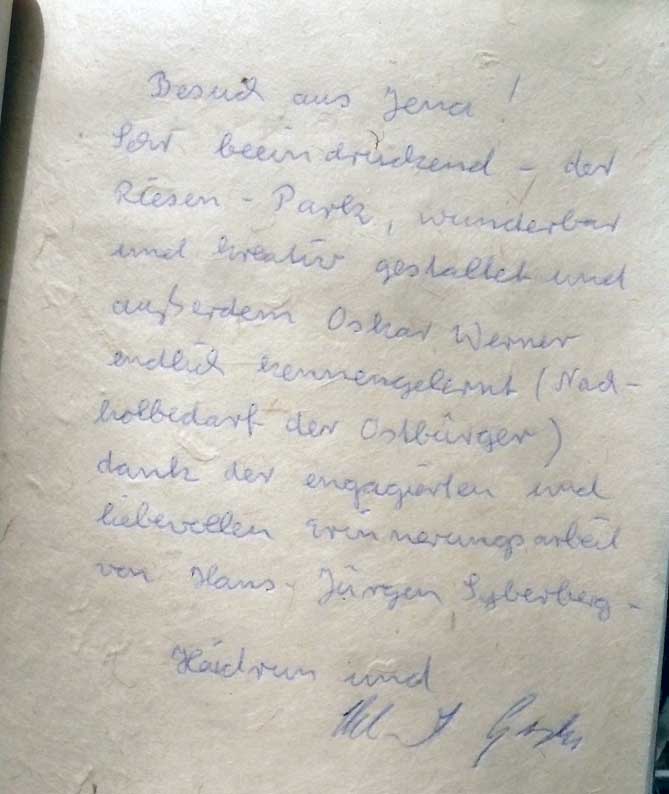 Besuch aus Jena!
Sehr beeindruckend - der
Riesen - Park, wunderbar
und kreativ gestaltet und
außerdem Oskar Werner
endlich kennengelernt (Nach-
holbedarf der Ostbürger)
dank der engagierten und
liebevollen Erinnerungsarbeit
von Hans-Jürgen Syberberg -
Haidrun und